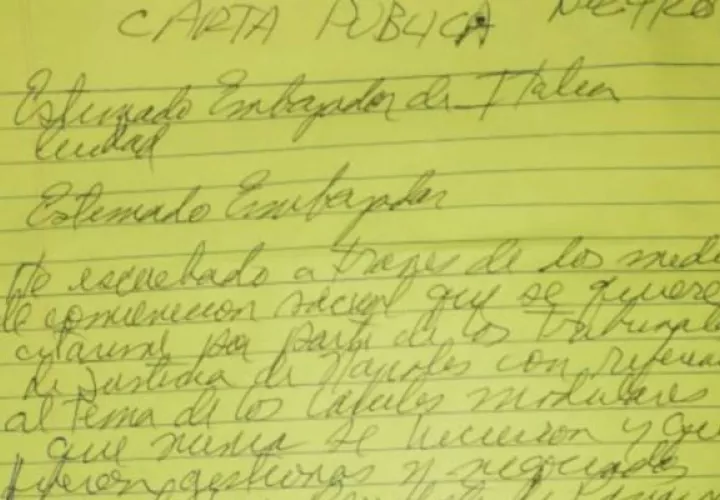 CARTA PUBLICA
Estimado Embajador de Italia
Ciudad
Estimado Embajador
He escuchado a traves de los medi
de comunicacion social que se quiere
citarme por parte de los tribunale
de Justicia de Napoles con referen
al tema de los Carceles modulares
que nunca se hicieron y que
fueron gestionas y negociados